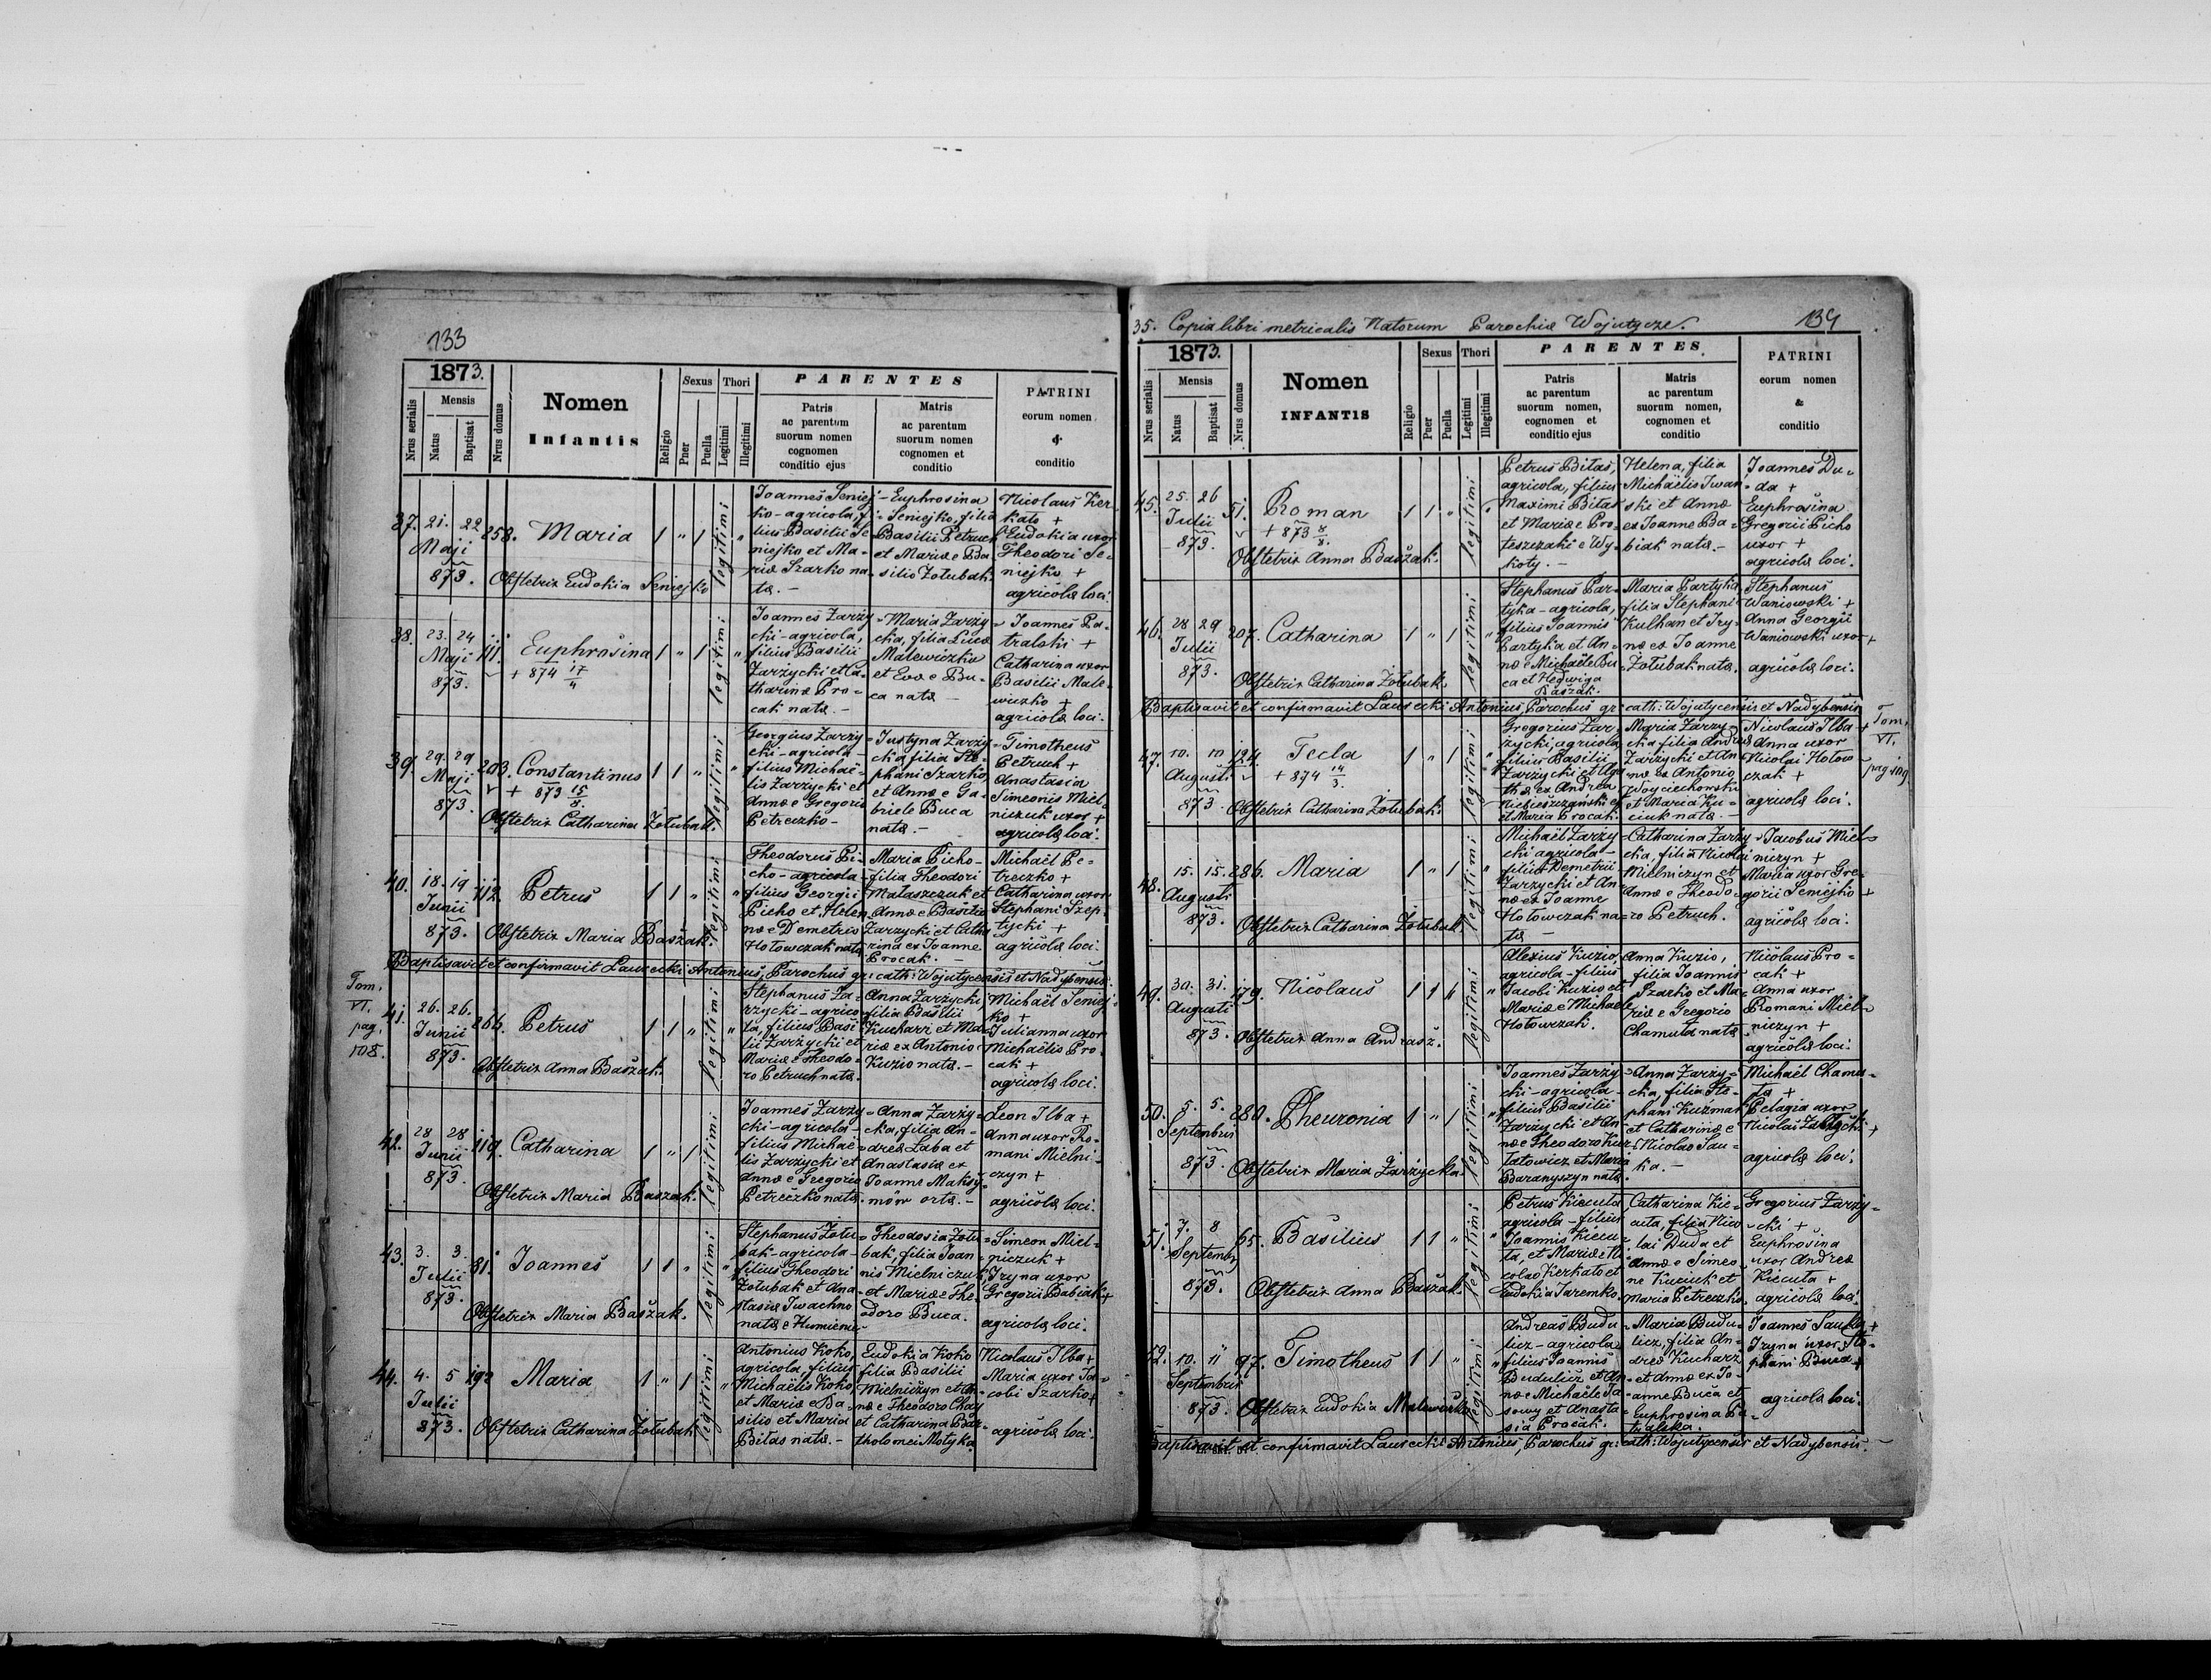 133
1873.
Nrus serialis
Mensis
Natus
Baptisat
Nrus domus
Nomen
Infantis
Religio
Sexus
Puer
Puella
Thori
Legitimi
Illegitimi
PARENTES
Patris
ac parentum
suorum nomen
cognomen
conditio ejus
Matris
ac parentum
suorum nomen
cognomen et
conditio
PATRINI
eorum nomen
&
conditio
37. 21. 22 258. Maria 1 " 1 legitimi "
Maji
873. Obstetrix Eudokia Seniejko
Joannes Seniej-
ko - agricola, fi-
lius Basilii Se-
niejko et Ma-
riæ Szarko na-
ta. -
Euphrosina
Seniejko, filia
Basilii Petruch
et Mariæ e Ba-
silio Zołubak.
Nicolaus Kier-
kato +
Eudokia uxor
Theodori Se-
niejko +
agricolæ loci.
38. 23. 24 111. Euphrosina 1 " 1 legitimi "
Maji + 874 17/4
873.
Joannes Zarzy-
cki - agricola,
filius Basilii
Zarzycki et Ca-
tharinæ Pro-
cak nata. -
Maria Zarzy-
cka, filia Lucæ
Malewiczko
et Evæ e Bu-
ca nata -
Joannes Pa-
tralski +
Catharina uxor
Basilii Male-
wiczko +
agricolæ loci.
39. 29. 29 203. Constantinus 1 1 " legitimi "
Maji + 873 15/8.
873.
Obstetrix Catharina Zołubak.
Georgius Zarzy-
cki - agricola -
filius Michaë-
lis Zarzycki et
Annæ e Gregorio
Petreczko -
Justyna Zarzy-
cka filia Ste-
phani Szarko,
et Annæ e Ga-
briele Buca
nata. -
Timotheus
Petruch +
Anastasia
Simeonis Miel-
niczuk uxor +
agricolæ loci.
40. 18. 19 112. Petrus 1 1 " legitimi "
Junii
873. Obstetrix Maria Baszak.
Theodorus Pi-
cho - agricola -
filius Georgii
Picho et Hele-
næ e Demetrio
Hołowczak nata
Maria Picho -
filia Theodori
Mataszczuk et
Annæ e Basilio
Zarzycki et Catha-
rina ex Joanne
Procak. -
Michaël Pe-
treczko +
Catharina uxor
Stephani Szep-
tycki +
agricolæ loci.
Baptisavit et confirmavit Laurecki Antonius, Parochus gr: cath: Wojutycensis et Nadybensis.
Tom.
VI.
pag.
108.
41. 26. 26. 266. Petrus 1 1 " legitimi "
Junii
873.
Obstetrix Anna Baszak.
Stephanus Za-
rzycki - agrico-
la, filius Basi-
lii Zarzycki et
Mariæ e Theodo-
ro Petruch nata.
Anna Zarzycki,
filia Basilii
Kucharz et Ma-
riæ ex Antonio
Kuzio nata. -
Michaël Seniej-
ko +
Julianna uxor
Michaëlis Pro-
cak +
agricolæ loci.
42. 28 28 119. Catharina 1 " 1 legitimi
Junii
873.
Obstetrix Maria Baszak.
Joannes Zarzy-
cki - agricola -
filius Michaë-
lis Zarzycki et
Annæ e Gregorio
Petreczko nata.
Anna Zarzy-
cka, filia An-
dreæ Laba et
Anastasiæ ex
Joanne Maksy-
mów orta. -
Leon Ilba +
Anna uxor Ro-
mani Mielni-
czyn +
agricolæ loci.
43. 3. 3. 81. Joannes 1 1 " legitimi "
Julii
873.
Obstetrix Maria Baszak.
Stephanus Zołu-
bak - agricola -
filius Theodori
Zołubak et Ana-
stasiæ Iwachno
nata e Humienic
Theodosia Zołu-
bak, filia Joan-
nis Mielniczuk
et Mariæ e The-
odoro Buca.
Simeon Miel-
niczuk +
Iryna uxor
Gregorii Babiak +
agricolæ loci.
44. 4. 5 192 Maria 1 " 1 legitimi "
Julii
873. Obstetrix Catharina Zołubak
Antonius Koko,
agricola, filius
Michaëlis Koko
et Mariæ e Ba-
silio et Maria
Bitas nata. -
Eudokia Koko
filia Basilii
Mielniczyn et An-
næ e Theodoro Chay
et Catharina Bar-
tholomei Motyka
Nicolaus Ilba +
Maria uxor Ja-
cobi Szarko +
agricolæ loci.
35. Copia libri metricalis Natorum Parochiæ Wojutycze.
134
1873.
Nrus serialis
Mensis
Natus
Baptisat
Nrus domus
Nomen
INFANTIS
Religio
Sexus
Puer
Puella
Thori
Legitimi
Illegitimi
PARENTES
Patris
ac parentum
suorum nomen,
cognomen et
conditio ejus
Matris
ac parentum
suorum nomen,
cognomen et
conditio
PATRINI
eorum nomen
&
conditio
45. 25. 26 51. Roman 1 1 " legitimi "
Julii + 873 8/8.
873.
Obstetrix Anna Baszak.
Petrus Bitas,
agricola, filius
Maximi Bitas
et Mariæ e Pro-
teszczaki e Wy-
koty. -
Helena, filia
Michaëlis Iwan-
ski et Annæ
ex Joanne Ba-
biak nata. -
Joannes Du-
da +
Euphrosina
Gregorii Picho
uxor +
agricolæ loci.
46. 28 29 207. Catharina 1 " 1 legitimi "
Julii
873.
Obstetrix Catharina Zołubak
Stephanus Par-
tyka - agricola,
filius Joannis
Partyka et An-
næ e Michaële Bu-
ca et Hedwiga
Baszak.
Maria Partyka
filia Stephani
Kulhan et Iry-
næ ex Joanne
Zołubak nata.
Stephanus
Waniowski +
Anna Georgii
Waniowski uxor +
agricolæ loci.
Baptisavit et confirmavit Laurecki Antonius, Parochus gr: cath: Wojutycensis et Nadybensis
Tom.
VI.
pag 109
47. 10. 10 124. Tecla 1 " 1 legitimi "
Augusti + 874 14/3.
873 Obstetrix Catharina Zołubak.
Gregorius Zar-
zycki, agricola
filius Basilii
Zarzycki et Aga-
thæ ex Andrea
Niebieszczański et
et Maria Procak.
Maria Zarzy-
cka filia Andreæ
Zarzycki et An-
næ ex Antonio
Woyciechowski
et Maria Ku-
ciuk nata. -
Nicolaus Ilba +
Anna uxor
Nicolai Hołow-
czak +
agricolæ loci.
48. 15. 15. 286. Maria 1 " 1 legitimi "
Augusti
873. Obstetrix Catharina Zołubak.
Michaël Zarzy-
cki agricola -
filius Demetrii
Zarzycki et An-
næ ex Joanne
Hołowczak na-
ta -
Catharina Zarzy-
cka, filia Nicolai
Mielniczyn et
Annæ e Theodo-
ro Petruch.
Jacobus Miel-
niczyn +
Maria uxor Gre-
gorii Seniejko +
agricolæ loci.
49. 30. 31. 179. Nicolaus 1 1 " legitimi "
Augusti
873. Obstetrix Anna Andrasz.
Alexius Kuzio,
agricola - filius
Jacobi Kuzio et
Mariæ e Michaele
Hołowczak.
Anna Kuzio,
filia Joannis
Szarko et Ma-
riæ e Gregorio
Chamuła nata
Nicolaus Pro-
cak +
Anna uxor
Romani Miel-
niczyn +
agricolæ loci.
50. 5. 5. 280. Pheuronia 1 " 1 legitimi "
Septembris
873. Obstetrix Maria Zarzycka.
Joannes Zarzy-
cki - agricola -
filius Basilii
Zarzycki et An-
næ e Theodoro Kur-
łatowicz et Maria
Baranyszyn nata.
Anna Zarzy-
cka, filia Ste-
phani Kuźmak
et Catharinæ e
Nicolao Sau-
ka. -
Michaël Chamu-
ta +
Pelagia uxor
Nicolai Zarzycki +
agricolæ loci.
51. 7. 8 65. Basilius 1 1 " legitimi "
Septembr
873. Obstetrix Anna Baszak.
Petrus Kiecuta
agricola - filius
Joannis Kiecu-
ta, et Mariæ e Ni-
colao Kierkato et
Eudokia Jaremko.
Catharina Kie-
cuta, filia Nico-
lai Duda et
Annæ e Simeo-
ne Kuciuk et
Maria Petreczko.
Gregorius Zarzy-
cki +
Euphrosina
uxor Andreæ
Kiecuta +
agricolæ loci.
52. 10. 11 97. Timotheus 1 1 " legitimi "
Septembris
873. Obstetrix Eudokia Malewiczko
Andreas Budu-
licz - agricola
filius Joannis
Budulicz et An-
næ e Michaële Ja-
sowy et Anasta-
sia Procak.
Maria Budu-
licz, filia An-
dreæ Kucharz
et Annæ ex Jo-
anne Buca et
Euphrosina Pa-
tralska.
Joannes Sauka +
Iryna uxor Ste-
phani Buca +
agricolæ loci.
Baptisavit et confirmavit Laurecki Antonius, Parochus gr: cath: Wojutycensis et Nadybensis.